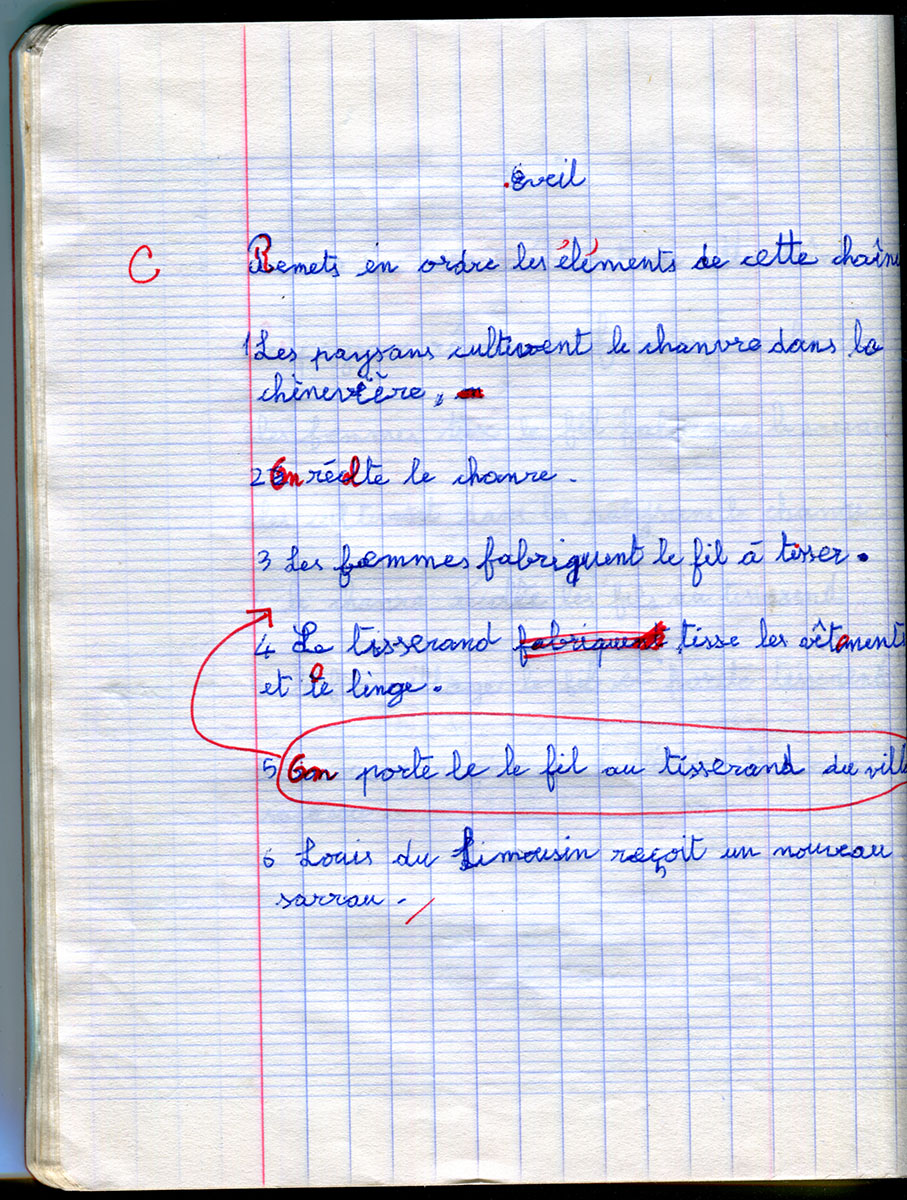 éveil
C
Remets en ordre les éléments de cette chaîne
1 Les paysans cultivent le chanvre dans la
chènevière.
2 On récolte le chanvre.
3 Les femmes fabriquent le fil à tisser.
4 Le tisserand fabriquent tisse les vêtements
et le linge.
5 On porte le le fil au tisserand du vill
6 Louis du Limousin reçoit un nouveau
sarrau.